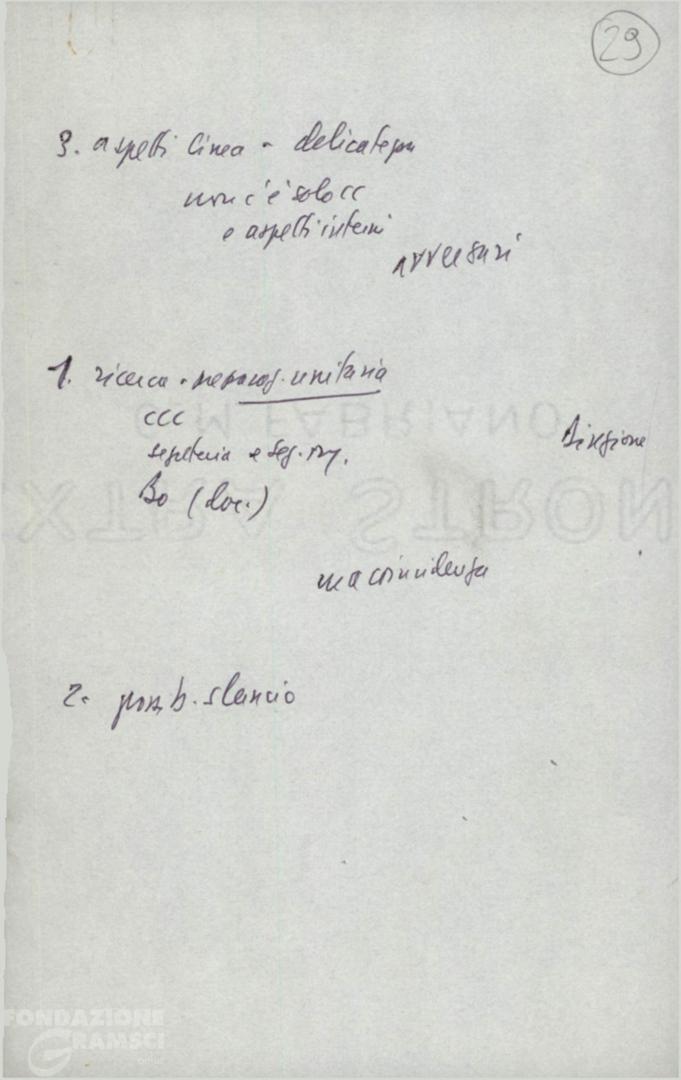 29
3. aspetti linea - delicatezza
non c'è solo CC
e aspetti interni
avversari
1. ricerca - unitaria
CCC
segreteria e seg. reg.
Direzione
Bo (doc.)
C.M. FABRIANO
EXTRA STRONG
ma coincidenza
2. possib. slancio
FONDAZIONE
GRAMSCI